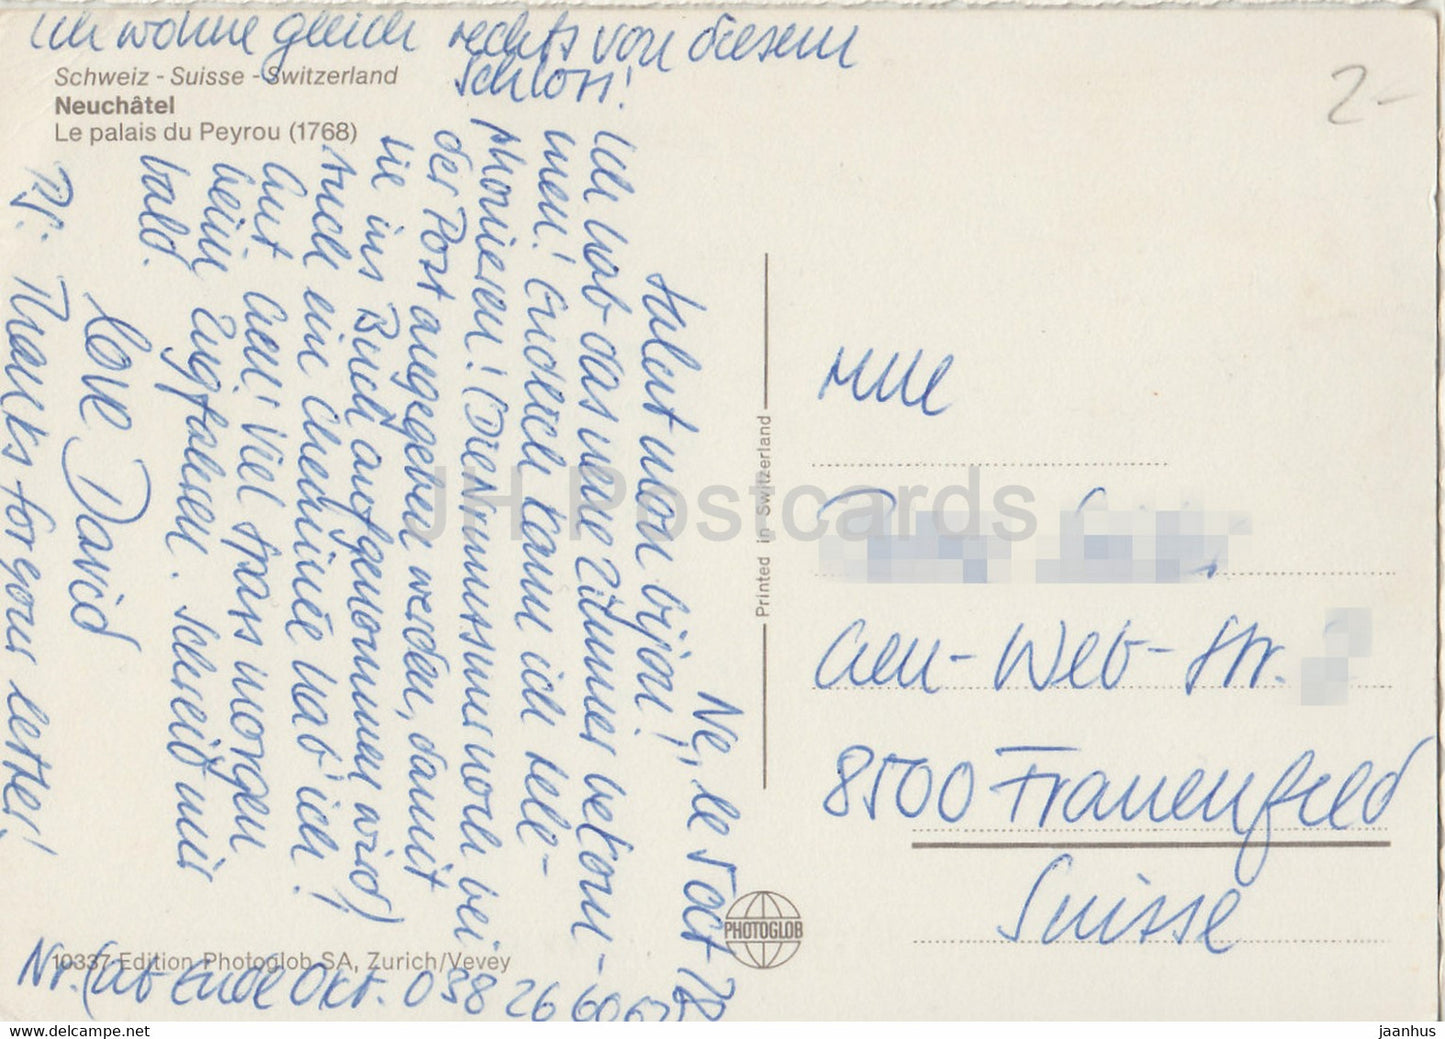 Ich wohne gleich rechts von diesem
Schloss!
Schweiz - Suisse - Switzerland
Neuchâtel
Le palais du Peyrou (1768)
2-
Ne, le 5 oct 78
Salut mon bijou!
Ich hab das neue Zimmer bekom-
men! Endlich kann ich tele-
phonieren! (Die Nummer muss noch bei
der Post angegeben werden, damit
sie ins Buch aufgenommen wird)
Auch ein Cheminée hab' ich!
Gut, gell! Viel Spass morgen
beim Zugfahren. Schreib mir
bald.
Love David
PS: Thanks for your letter!
Nr. (ab Ende Okt. 038 26 60
10337 Edition Photoglob SA, Zurich/Vevey
Printed in Switzerland
PHOTOGLOB
Mlle
-Str.
8500 Frauenfeld
Suisse
JH Postcards
www.delcampe.net
jaanhus